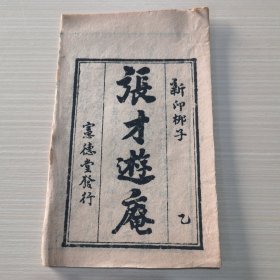 新印梆子
乙
張才遊庵
憲德堂發行